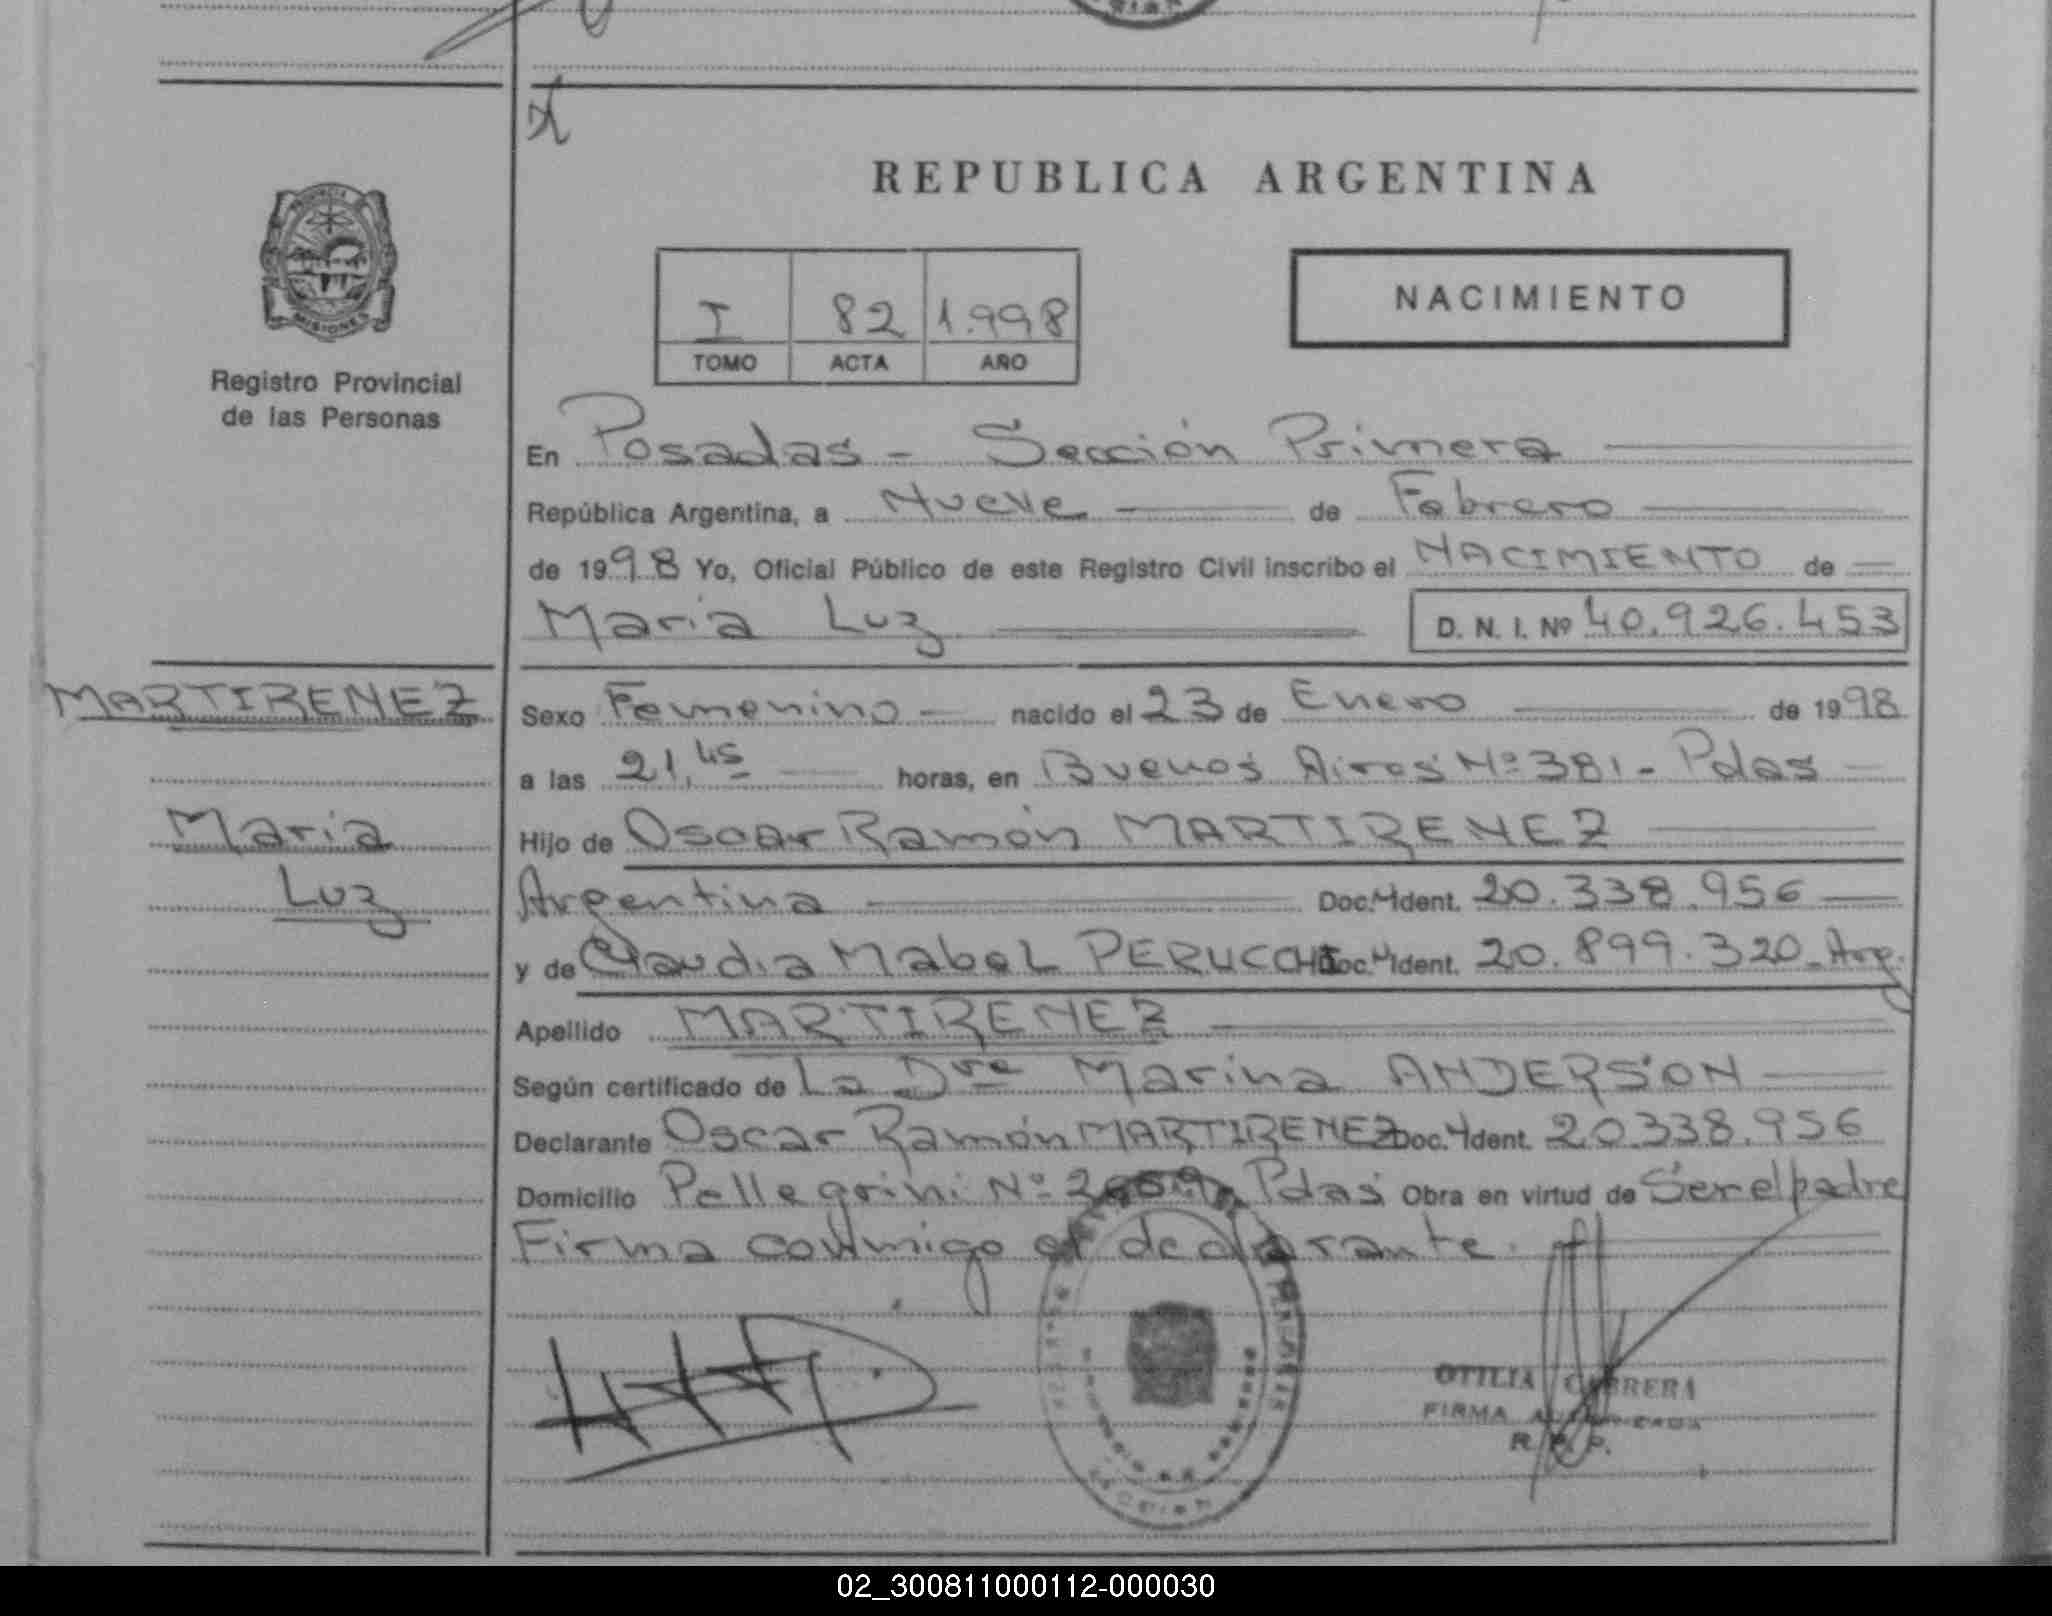 REPUBLICA ARGENTINA
I 82 1.998
TOMO ACTA AÑO
NACIMIENTO
PROVINCIA
MISIONES
Registro Provincial
de las Personas
En Posadas - Sección Primera
República Argentina, a Nueve de Febrero
de 1998 Yo, Oficial Público de este Registro Civil inscribo el NACIMIENTO de
Maria Luz D. N. I. Nº 40.926.453
MARTIRENEZ
Maria
Luz
Sexo Femenino nacido el 23 de Enero de 1998
a las 21,45 horas, en Buenos Aires Nº 381 - Pdas
Hijo de Oscar Ramón MARTIRENEZ
Argentina Doc. Ident. 20.338.956
y de Claudia Mabel PERUCCHI Doc. Ident. 20.899.320 - Arg.
Apellido MARTIRENEZ
Según certificado de La Dra Marina ANDERSON
Declarante Oscar Ramón MARTIRENEZ Doc. Ident. 20.338.956
Domicilio Pellegrini Nº Pdas Obra en virtud de Ser el padre
Firma conmigo el declarante.
OTILIA CABRERA
FIRMA AUTORIZADA
R. P. P.
02_300811000112-000030